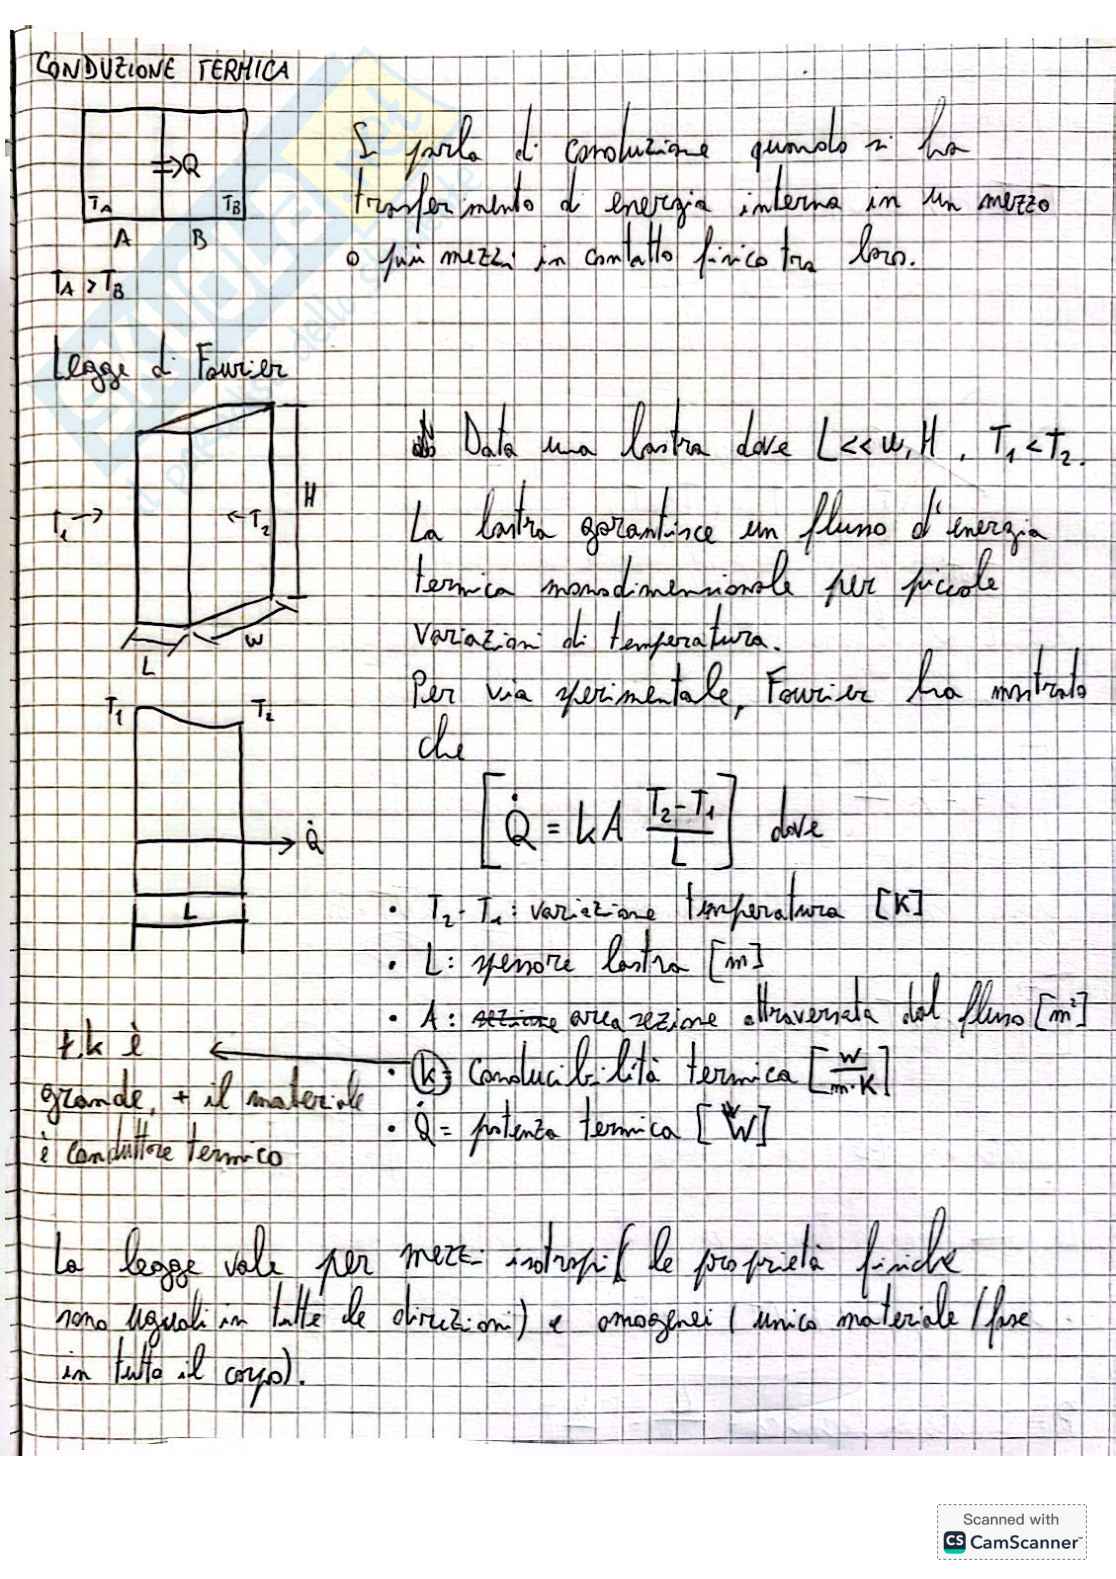 CONDUZIONE TERMICA
⇒Q
TA TB
A B
TA > TB
Si parla di conduzione quando si ha
trasferimento di energia interna in un mezzo
o più mezzi in contatto fisico tra loro.
Legge di Fourier
T1 → ← T2
H
L
w
Data una lastra dove L << w, H, T1 < T2.
La lastra garantisce un flusso d'energia
termica monodimensionale per piccole
variazioni di temperatura.
Per via sperimentale, Fourier ha mostrato
che
T1 T2
Q̇
L
[Q̇ = kA (T2-T1)/L] dove
• T2-T1: variazione temperatura [K]
• L: spessore lastra [m]
• A: sezione area sezione attraversata dal flusso [m²]
• k= Conducibilità termica [W/m·K]
• Q̇= potenza termica [W]
+ k è
grande, + il materiale
è conduttore termico
La legge vale per mezzi isotropi (le proprietà fisiche
sono uguali in tutte le direzioni) e omogenei (unico materiale/fase
in tutto il corpo).
Scanned with
CS CamScanner